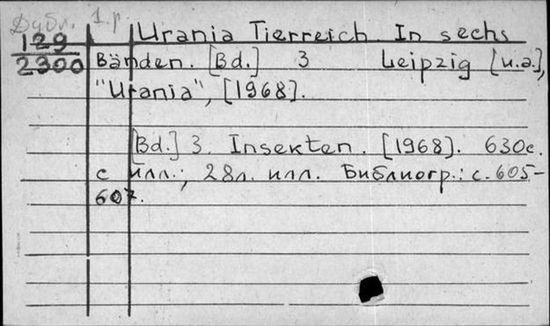 Дубл. 1 р.
129
2300
Urania Tierreich. In sechs
Bänden. [Bd.] 3 Leipzig [u.a.],
"Urania", [1968].
[Bd.] 3. Insekten. [1968]. 630с.
с илл.; 28л. илл. Библиогр.: с. 605-
607.